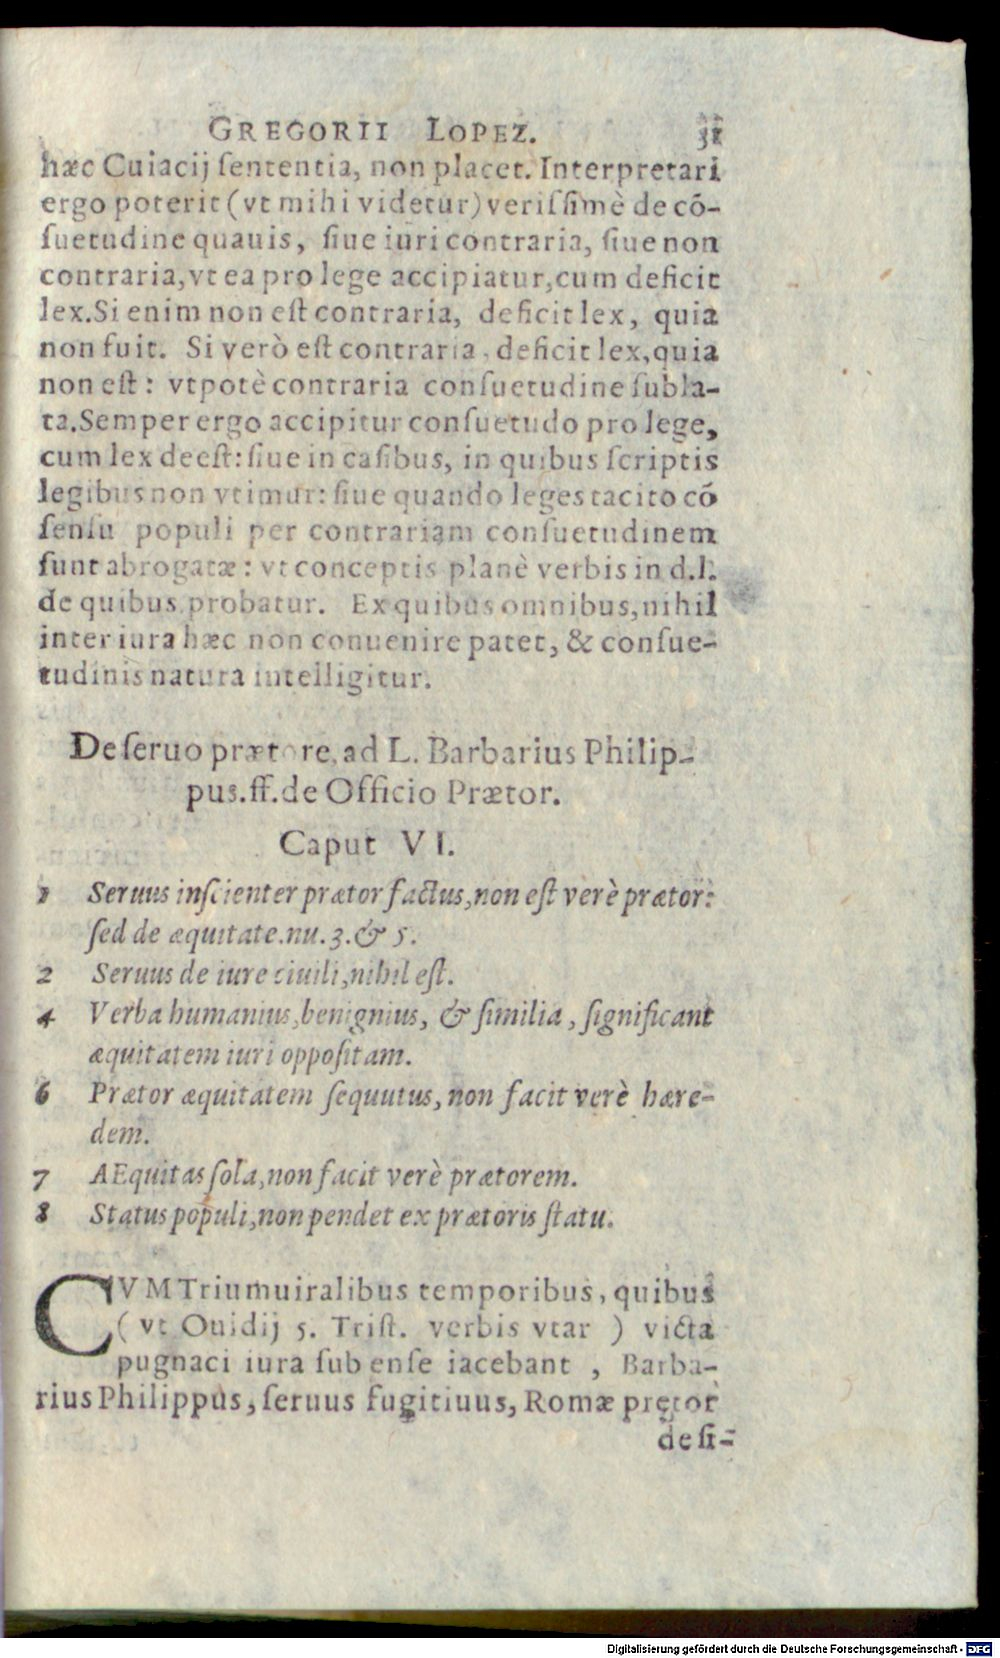 GREGORII LOPEZ. 31
hæc Cuiacij ſententia, non placet. Interpretari
ergo poterit (vt mihi videtur) veriſſimè de cō-
ſuetudine quauis, ſiue iuri contraria, ſiue non
contraria, vt ea pro lege accipiatur, cum deficit
lex. Si enim non eſt contraria, deficit lex, quia
non fuit. Si verò eſt contraria, deficit lex, quia
non eſt: vtpotè contraria conſuetudine ſubla-
ta. Semper ergo accipitur conſuetudo pro lege,
cum lex deeſt: ſiue in caſibus, in quibus ſcriptis
legibus non vtimur: ſiue quando leges tacito cō
ſenſu populi per contrariam conſuetudinem
ſunt abrogatæ: vt conceptis planè verbis in d.l.
de quibus probatur. Ex quibus omnibus, nihil
inter iura hæc non conuenire patet, & conſue-
tudinis natura intelligitur.
De ſeruo prætore, ad L. Barbarius Philip-
pus. ff. de Officio Prætor.
Caput VI.
1 Seruus inſcienter prætor factus, non eſt verè prætor:
ſed de æquitate. nu. 3. & 5.
2 Seruus de iure ciuili, nihil eſt.
4 Verba humanius, benignius, & ſimilia, ſignificant
æquitatem iuri oppoſitam.
6 Prætor æquitatem ſequutus, non facit verè hære-
dem.
7 AEquitas ſola, non facit verè prætorem.
8 Status populi, non pendet ex prætoris ſtatu.
CVM Triumuiralibus temporibus, quibus
( vt Ouidij 5. Triſt. verbis vtar ) victa
pugnaci iura ſub enſe iacebant , Barba-
rius Philippus, ſeruus fugitiuus, Romæ prętor
deſi-
Digitalisierung gefördert durch die Deutsche Forschungsgemeinschaft - DFG